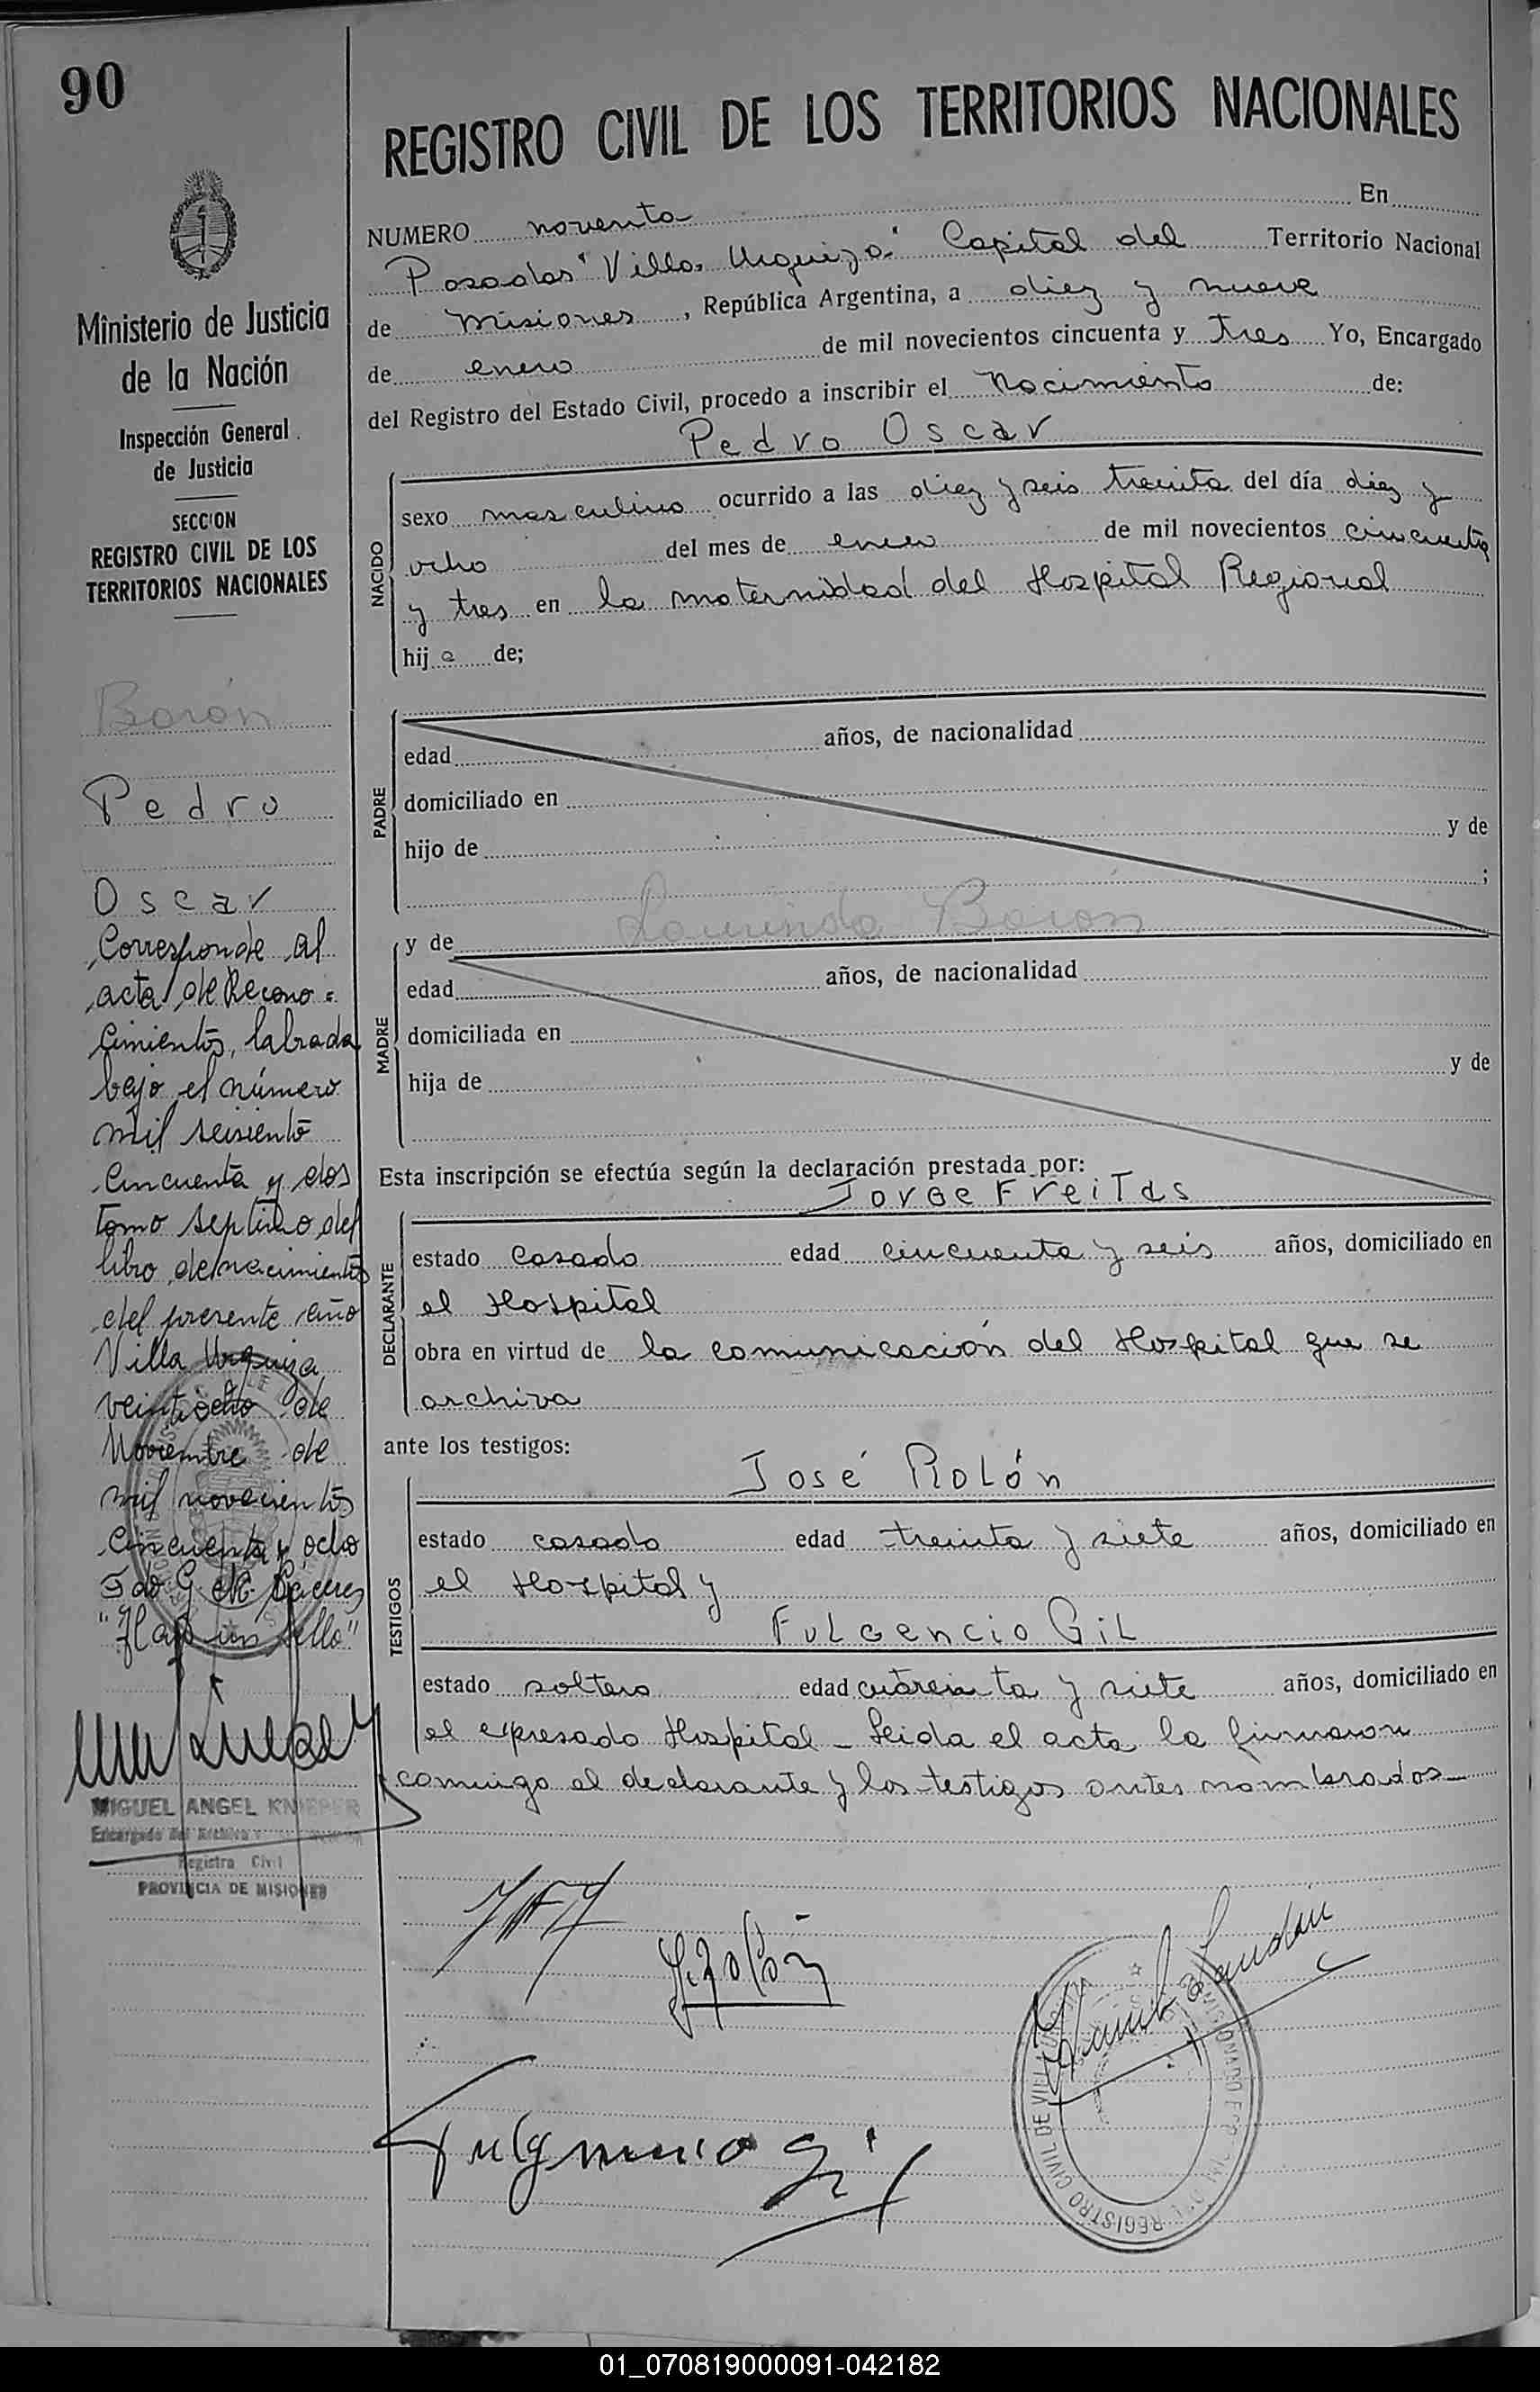 90
REGISTRO CIVIL DE LOS TERRITORIOS NACIONALES
Ministerio de Justicia
de la Nación
Inspección General
de Justicia
SECCION
REGISTRO CIVIL DE LOS
TERRITORIOS NACIONALES
Barón
Pedro
Oscar
Corresponde al
acta de Recono=
cimientos, labrada
bajo el número
mil seisiento
cincuenta y dos
tomo septimo del
libro de nacimientos
del presente año
Villa Urquiza
veintiocho de
Noviembre de
mil novecientos
cincuenta y ocho
Fdo G
"Hay un sello"
MIGUEL ANGEL KNIEPER
Encargado del Archivo
Registro Civil
PROVINCIA DE MISIONES
NUMERO noventa En
Posadas "Villa Urquiza" Capital del Territorio Nacional
de Misiones, República Argentina, a diez y nueve
de enero de mil novecientos cincuenta y tres Yo, Encargado
del Registro del Estado Civil, procedo a inscribir el Nacimiento de:
Pedro Oscar
NACIDO
sexo masculino ocurrido a las diez y seis treinta del día diez y
ocho del mes de enero de mil novecientos cincuenta
y tres en la maternidad del Hospital Regional
hijo de;
PADRE
edad años, de nacionalidad
domiciliado en
hijo de y de
;
MADRE
y de Laurinda Baron
edad años, de nacionalidad
domiciliada en
hija de y de
Esta inscripción se efectúa según la declaración prestada por:
Jorge Freitas
DECLARANTE
estado casado edad cincuenta y seis años, domiciliado en
el Hospital
obra en virtud de la comunicación del Hospital que se
archiva
ante los testigos:
José Rolón
TESTIGOS
estado casado edad treinta y siete años, domiciliado en
el Hospital y
Fulgencio Gil
estado soltero edad cuarenta y siete años, domiciliado en
el expresado Hospital - Leida el acta la firmaron
comigo el declarante y los testigos antes nombrados
Fulgencio Gil
REGISTRO CIVIL DE VILLA URQUIZA
01_070819000091-042182